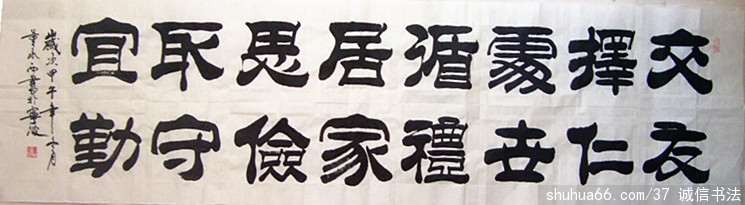 交友
擇仁
處世
循禮
居家
思儉
取守
宜勤
歲次甲午年月
書於寧波
shuhua66.com/37 诚信书法